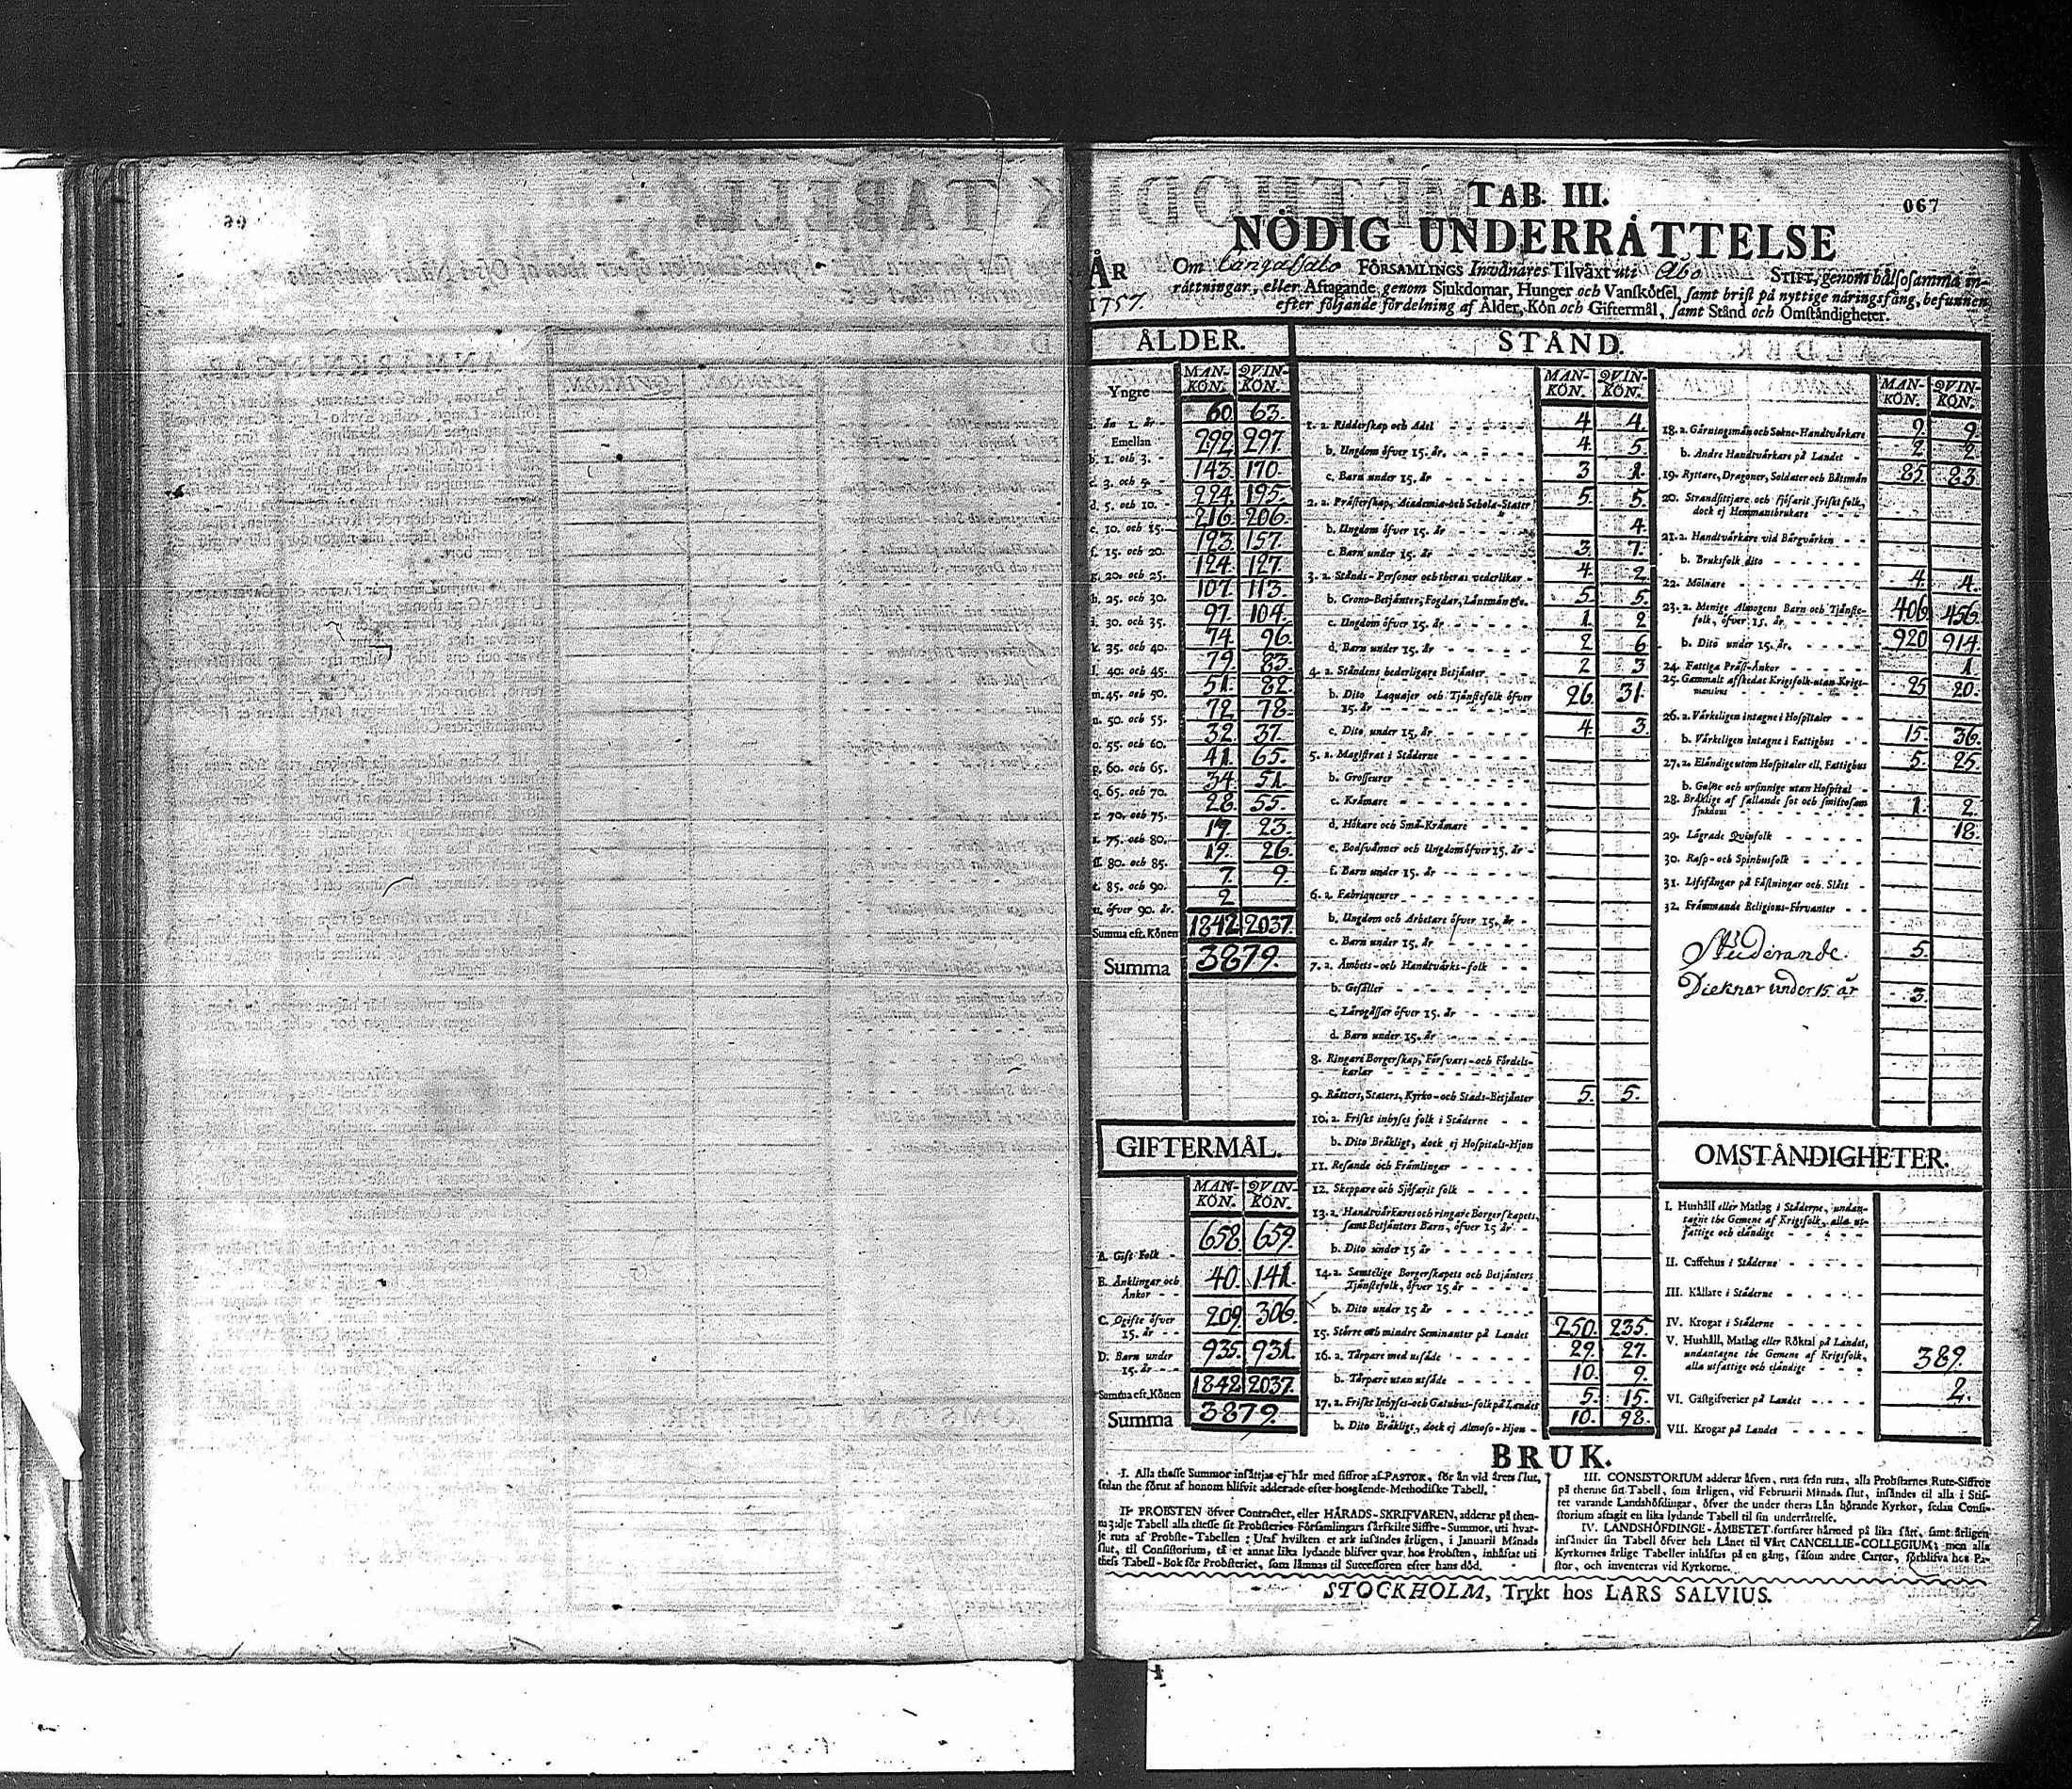 067
TAB. III.
NÖDIG UNDERRÅTTELSE
ÅR 1757.
Om FÖRSAMLINGS Invånares Tilväxt uti Åbo STIFT, genom hälsosamma in-
rättningar, eller Aftagande genom Sjukdomar, Hunger och Vanskötsel, samt brist på nyttige näringsfång, befunnen
efter följande fördelning af Ålder, Kön och Giftermål, samt Stånd och Omständigheter.
ÅLDER.
Yngre MAN-KÖN. QVIN-KÖN.
a. än 1. år - 60 63.
Emellan
b. 1. och 3. - 292 297
c. 3. och 5. - 143. 170.
d. 5. och 10. - 224 195.
e. 10. och 15. 216 206.
f. 15. och 20. 123 157.
g. 20. och 25. 124. 127
h. 25. och 30. 107. 113.
i. 30. och 35. 97. 104.
k. 35. och 40. 74. 96.
l. 40. och 45. 79. 83.
m. 45. och 50. 51. 82.
n. 50. och 55. 72 78.
o. 55. och 60. 32. 37.
p. 60. och 65. 41. 65.
q. 65. och 70. 34. 51.
r. 70. och 75. 28. 55.
s. 75. och 80. 17. 23.
ſſ. 80. och 85. 19. 26.
t. 85. och 90. 7. 9.
u. öfver 90. år. 2
Summa eft. Könen 1842 2037.
Summa 3879.
GIFTERMÅL.
MAN-KÖN. QVIN-KÖN.
A. Gift Folk - 658 659.
B. Änklingar och Änkor - - 40. 141.
C. Ogifte öfver 15. år - - 209. 306.
D. Barn under 15. år - - 935. 931.
Summa eft. Könen 1842 2037.
Summa 3879.
STÅND.
MAN-KÖN. QVIN-KÖN.
1. a. Ridderskap och Adel 4 4.
b. Ungdom öfver 15. år. 4. 5.
c. Barn under 15. år 3 1.
2. a. Prästerskap, Academiæ-och Schola-Stater 5. 5.
b. Ungdom öfver 15. år 4.
c. Barn under 15. år 3. 7.
3. a. Stånds-Personer och theras vederlikar 4. 2
b. Crono-Betjänter, Fogdar, Länsmän &c. 5. 5.
c. Ungdom öfver 15. år 1. 2
d. Barn under 15. år 2 6
4. a. Ståndens hederligare Betjänter 2 3
b. Dito Laquajer och Tjänstefolk öfver 15. år 26. 31
c. Dito under 15. år 4. 3
5. a. Magistrat i Städerne
b. Grosseurer
c. Krämare
d. Hökare och Små-Krämare
e. Bodsvänner och Ungdom öfver 15. år
f. Barn under 15. år
6. a. Fabriqueurer
b. Ungdom och Arbetare öfver 15. år
c. Barn under 15. år
7. a. Ämbets-och Handtvärks-folk
b. Gesäller
c. Lärogåssar öfver 15. år
d. Barn under 15. år
8. Ringare Borgerskap, Försvars-och Fördels-karlar
9. Rätters, Staters, Kyrko-och Stads-Betjänter 5. 5.
10. a. Friskt inhyses folk i Städerne
b. Dito Bräkligt, dock ej Hospitals-Hjon
11. Resande och Främlingar
12. Skeppare och Sjöfarit folk
13. a. Handtvärkares och ringare Borgerskapets, samt Betjänters Barn, öfver 15 år
b. Dito under 15 år
14. a. Samtelige Borgerskapets och Betjänters Tjänstefolk, öfver 15 år
b. Dito under 15 år
15. Större och mindre Seminanter på Landet 250. 235.
16. a. Torpare med utsäde 29. 27.
b. Torpare utan utsäde 10. 9.
17. a. Friskt Inhyses-och Gatuhus-folk på Landet 5. 15.
b. Dito Bräkligt, dock ej Almoso-Hjon 10. 98.
MAN-KÖN. QVIN-KÖN.
18. a. Gärningsmän och Sokne-Handtvärkare 9. 9.
b. Andre Handtvärkare på Landet 2 2.
19. Ryttare, Dragoner, Soldater och Båtsmän 85. 83.
20. Strandsittjare och sjöfarit friskt folk, dock ej Hemmansbrukare
21. a. Handtvärkare vid Bärgvärken
b. Bruksfolk dito
22. Mölnare 4. 4.
23. a. Menige Almogens Barn och Tjänste-folk, öfver 15. år 406 456.
b. Dito under 15. år. 920 914.
24. Fattiga Präst-Änkor 1.
25. Gammalt afskedat Krigsfolk utan Krigs-manshus 25 20.
26. a. Värkeligen intagne i Hospitaler
b. Värkeligen intagne i Fattighus 15. 36.
27. a. Eländige utom Hospitaler ell. Fattighus 5. 25.
b. Galne och ursinnige utan Hospital
28. Bräklige af fallande sot och smittosam sjukdom 1. 2.
29. Lägrade Qvinfolk 18.
30. Rasp-och Spinhusfolk
31. Lifsfångar på Fästningar och Slått
32. Främmande Religions-Förvanter
Studerande. 5.
Dieknar under 15 år 3.
OMSTÅNDIGHETER.
I. Hushåll eller Matlag i Städerne, undan-
tagne the Gemene af Krigsfolk, alla ut-
fattige och eländige
II. Caffehus i Städerne
III. Källare i Städerne
IV. Krogar i Städerne
V. Hushåll, Matlag eller Röktal på Landet,
undantagne the Gemene af Krigsfolk,
alla utfattige och eländige 389.
VI. Gästgifverier på Landet 2.
VII. Krogar på Landet
BRUK.
I. Alla thesse Summor insättjas ej här med siffror af PASTOR, för än vid årets slut,
sedan the förut af honom blifvit adderade efter hosgående Methodiske Tabell.
II. PROBSTEN öfver Contractet, eller HÄRADS-SKRIFVAREN, adderar på then-
na 3:dje Tabell alla thesse sit Probsteries Församlingars särskilte Siffre-Summor, uti hvar-
je ruta af Probste-Tabellen; Utaf hvilken et ark insändes årligen, i Januarii Månads
slut, til Consistorium, tå et annat lika lydande blifver qvar hos Probsten, inhäftat uti
thess Tabell-Bok för Probsteriet, som lämnas til Successoren efter hans död.
III. CONSISTORIUM adderar äfven, ruta från ruta, alla Probstarnes Rute-Siffror
på thenne sin Tabell, som årligen, vid Februarii Månads slut, insändes til alla i Stif-
tet varande Landshöfdingar, öfver the under theras Län hörande Kyrkor, sedan Consi-
storium aftagit en lika lydande Tabell til sin underrättelse.
IV. LANDSHÖFDINGE-ÄMBETET fortfarer härmed på lika sätt, samt årligen
insänder sin Tabell öfver hela Länet til Vårt CANCELLIE-COLLEGIUM; men alla
Kyrkornes årlige Tabeller inhäftas på en gång, såsom andre Cartor, förblifva hos Pa-
stor, och inventeras vid Kyrkorne.
STOCKHOLM, Trykt hos LARS SALVIUS.